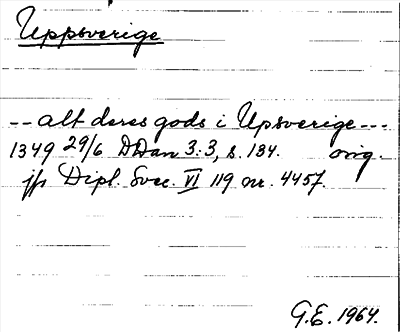 Uppsverige
-- alt deres gods i Upsverige ---
1349 29/6 DDan 3:3, s. 134. orig.
jfr Dipl. Svec. VI 119 nr. 4457.
G.E. 1964.